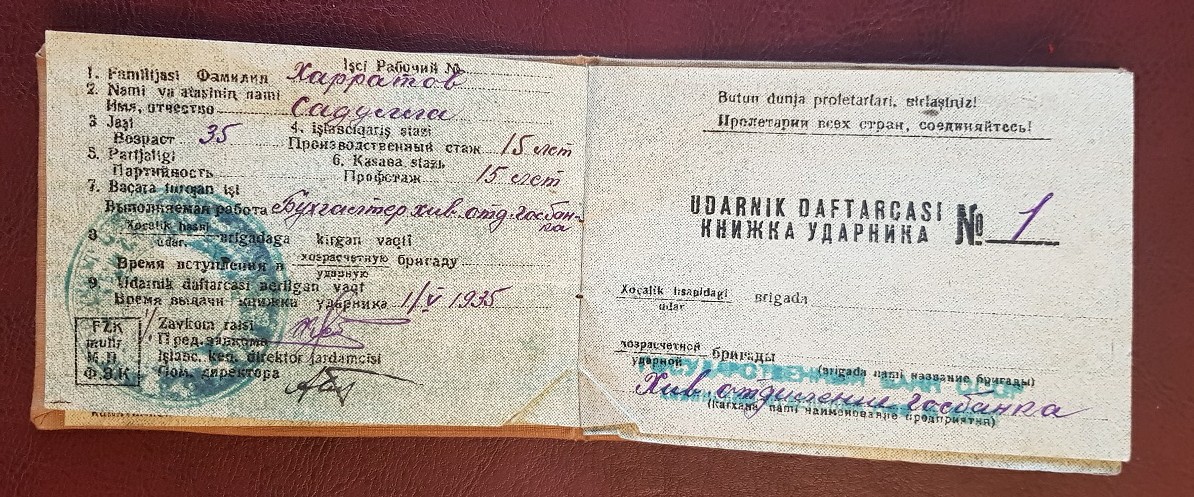 Işci Рабочий №
1. Familijasi Фамилия Харратов
2. Nami va atasinin nami
Имя, отчество Садулла
3 Jaşi
Возраст 35
4. işlabciqariş staƶi
Производственный стаж 15 лет
5. Partjaligi
Партийность
6. Kasaba staƶь
Профстаж 15 лет
7. Bacara turojan işi
Выполняемая работа Бухгалтер хив. отд. госбан-
ка
8 Xocalik hasbi
udar. brigadaga kirgan vaqti
Время вступления в хозрасчетную бригаду
ударную
9. Udarnik daftarcasi berilgan vaqt
Время выдачи книжки ударника 1/V 1935
FZK
muhr
М.П.
Ф.З.К
Zavkom raisi
Пред. завкома
Işlabc. ken. direktor jardamcisi
Пом. директора
Butun dunja proletarlari, birlaşiniz!
Пролетарии всех стран, соединяйтесь!
UDARNIK DAFTARCASI
КНИЖКА УДАРНИКА № 1
Xocalik hsabidagi brigada
udar
хозрасчетной бригады
ударной
(brigada nami название бригады)
ГОСУДАРСТВЕННЫЙ БАНК СССР
Хив. отдиления госбанка
(Karxana nami наименование предприятия)